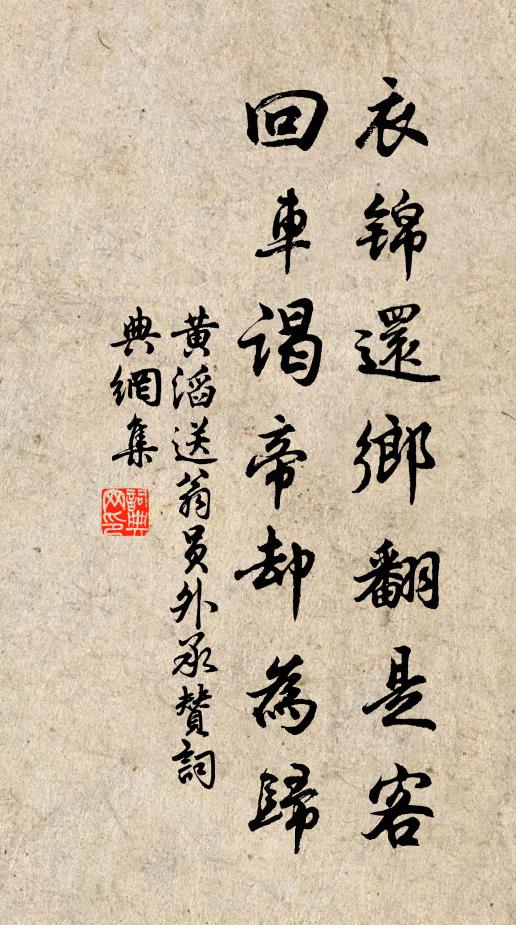 衣锦還鄉翻是客
回車謁帝却為歸
黃滔送翁員外承贊詞
典網集
詞典网印